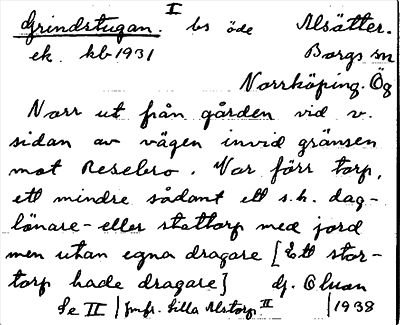 I
Grindstugan. bs öde Alsätter.
ek. kb 1931 Borgs sn
Norrköping. Ög
Norr ut från gården vid v.
sidan av vägen invid gränsen
mot Resebro. Var förr torp,
ett mindre sådant ett s.k. dag-
lönare- eller stattorp med jord
men utan egna dragare [Ett stor-
torp hade dragare] Hj. Olson
Se II | Jmfr. Lilla Alstorp II | 1938